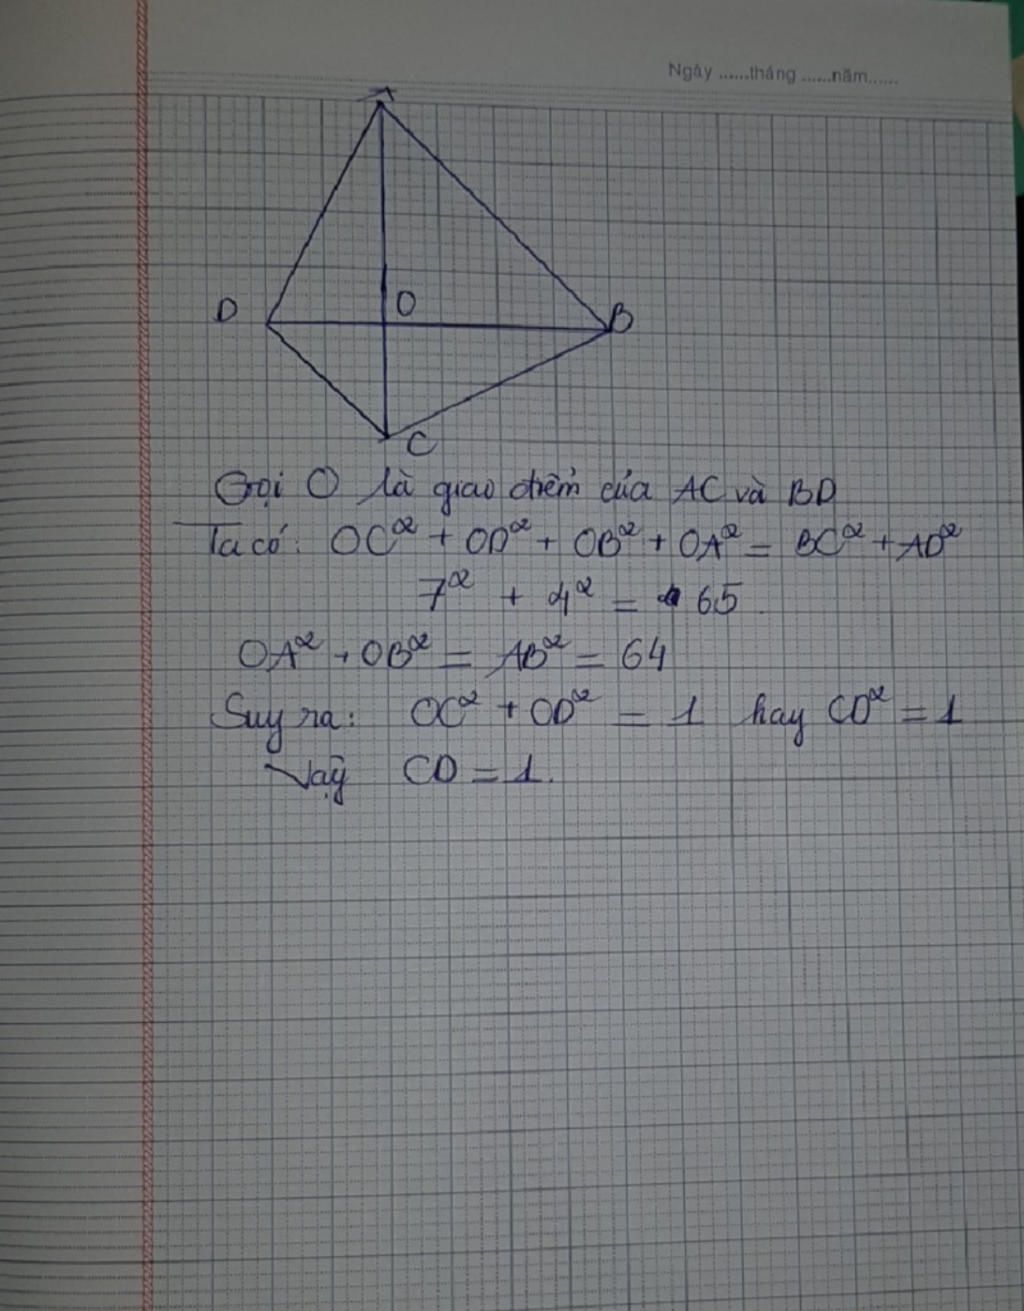 Ngày ......tháng ......năm......
A
D
O
B
C
Gọi O là giao điểm của AC và BD
Ta có: OC² + OD² + OB² + OA² = BC² + AD²
7² + 4² = 65
OA² + OB² = AB² = 64
Suy ra: OC² + OD² = 1 hay CD² = 1
Vậy CD = 1.